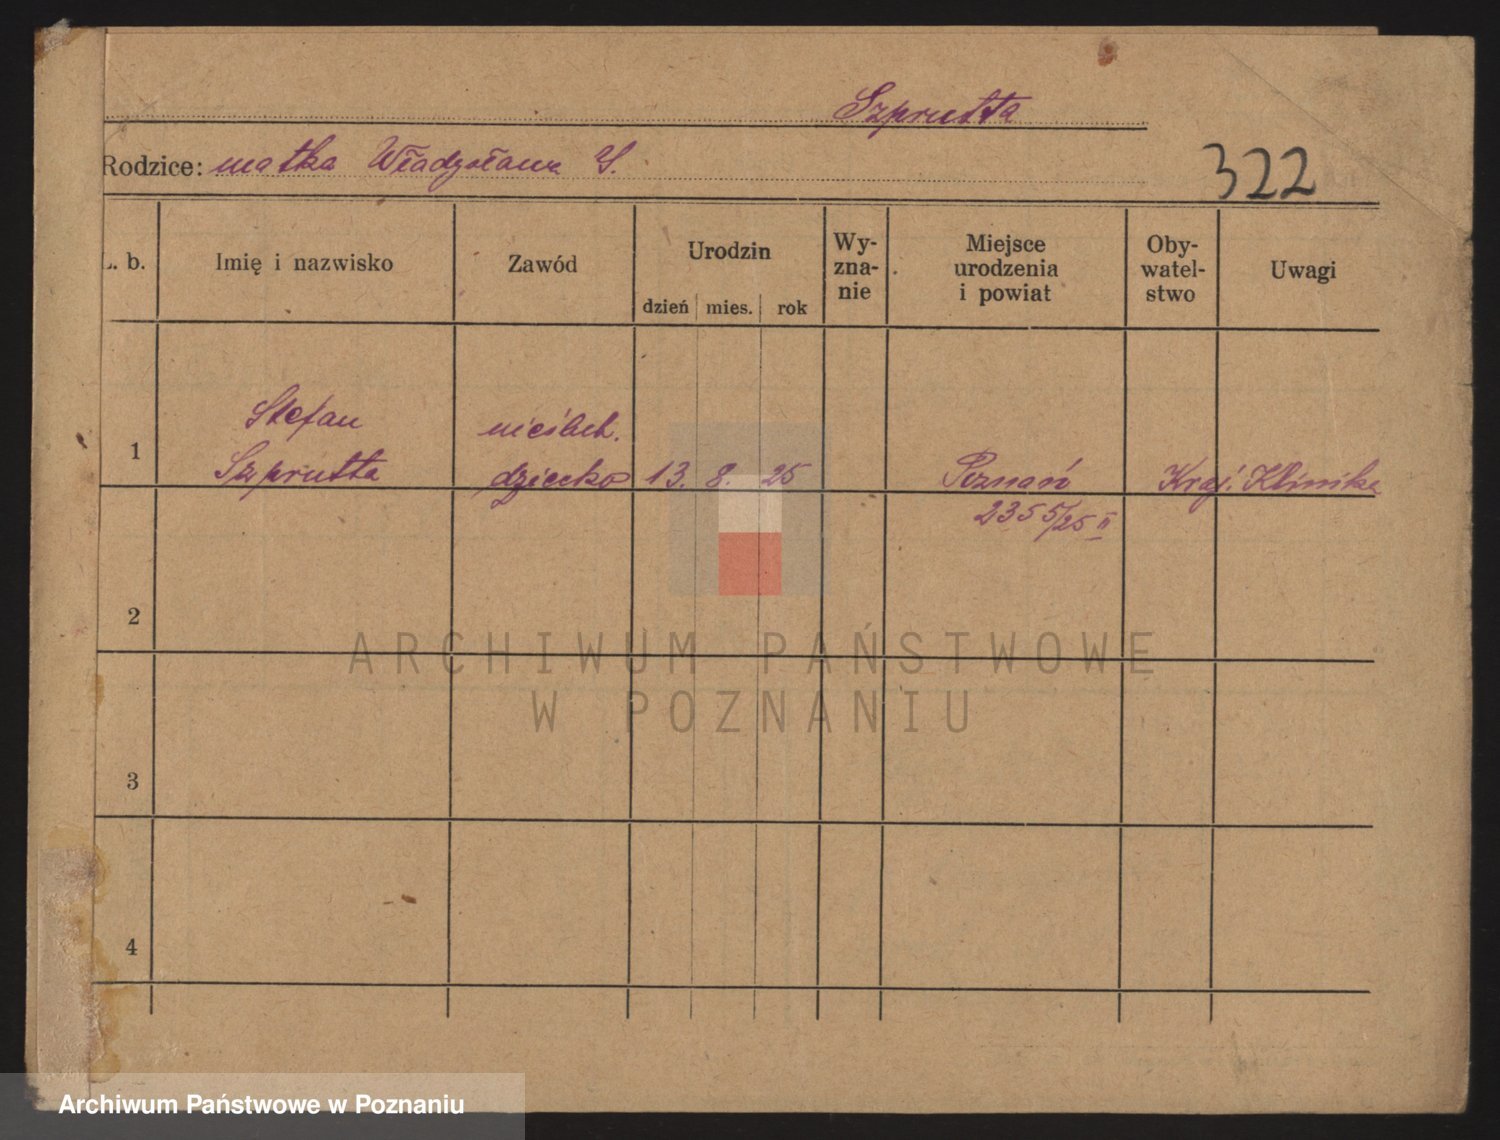 Szprutta
Rodzice: matka Władysława S.
322
L. b.
Imię i nazwisko
Zawód
Urodzin
dzień mies. rok
Wy-
zna-
nie
Miejsce
urodzenia
i powiat
Oby-
watel-
stwo
Uwagi
1
Stefan
Szprutta
nieślub.
dziecko
13. 8. 25
Poznań
2355/25 II
Kraj. Klinika
2
3
4
ARCHIWUM PAŃSTWOWE
W POZNANIU
Archiwum Państwowe w Poznaniu